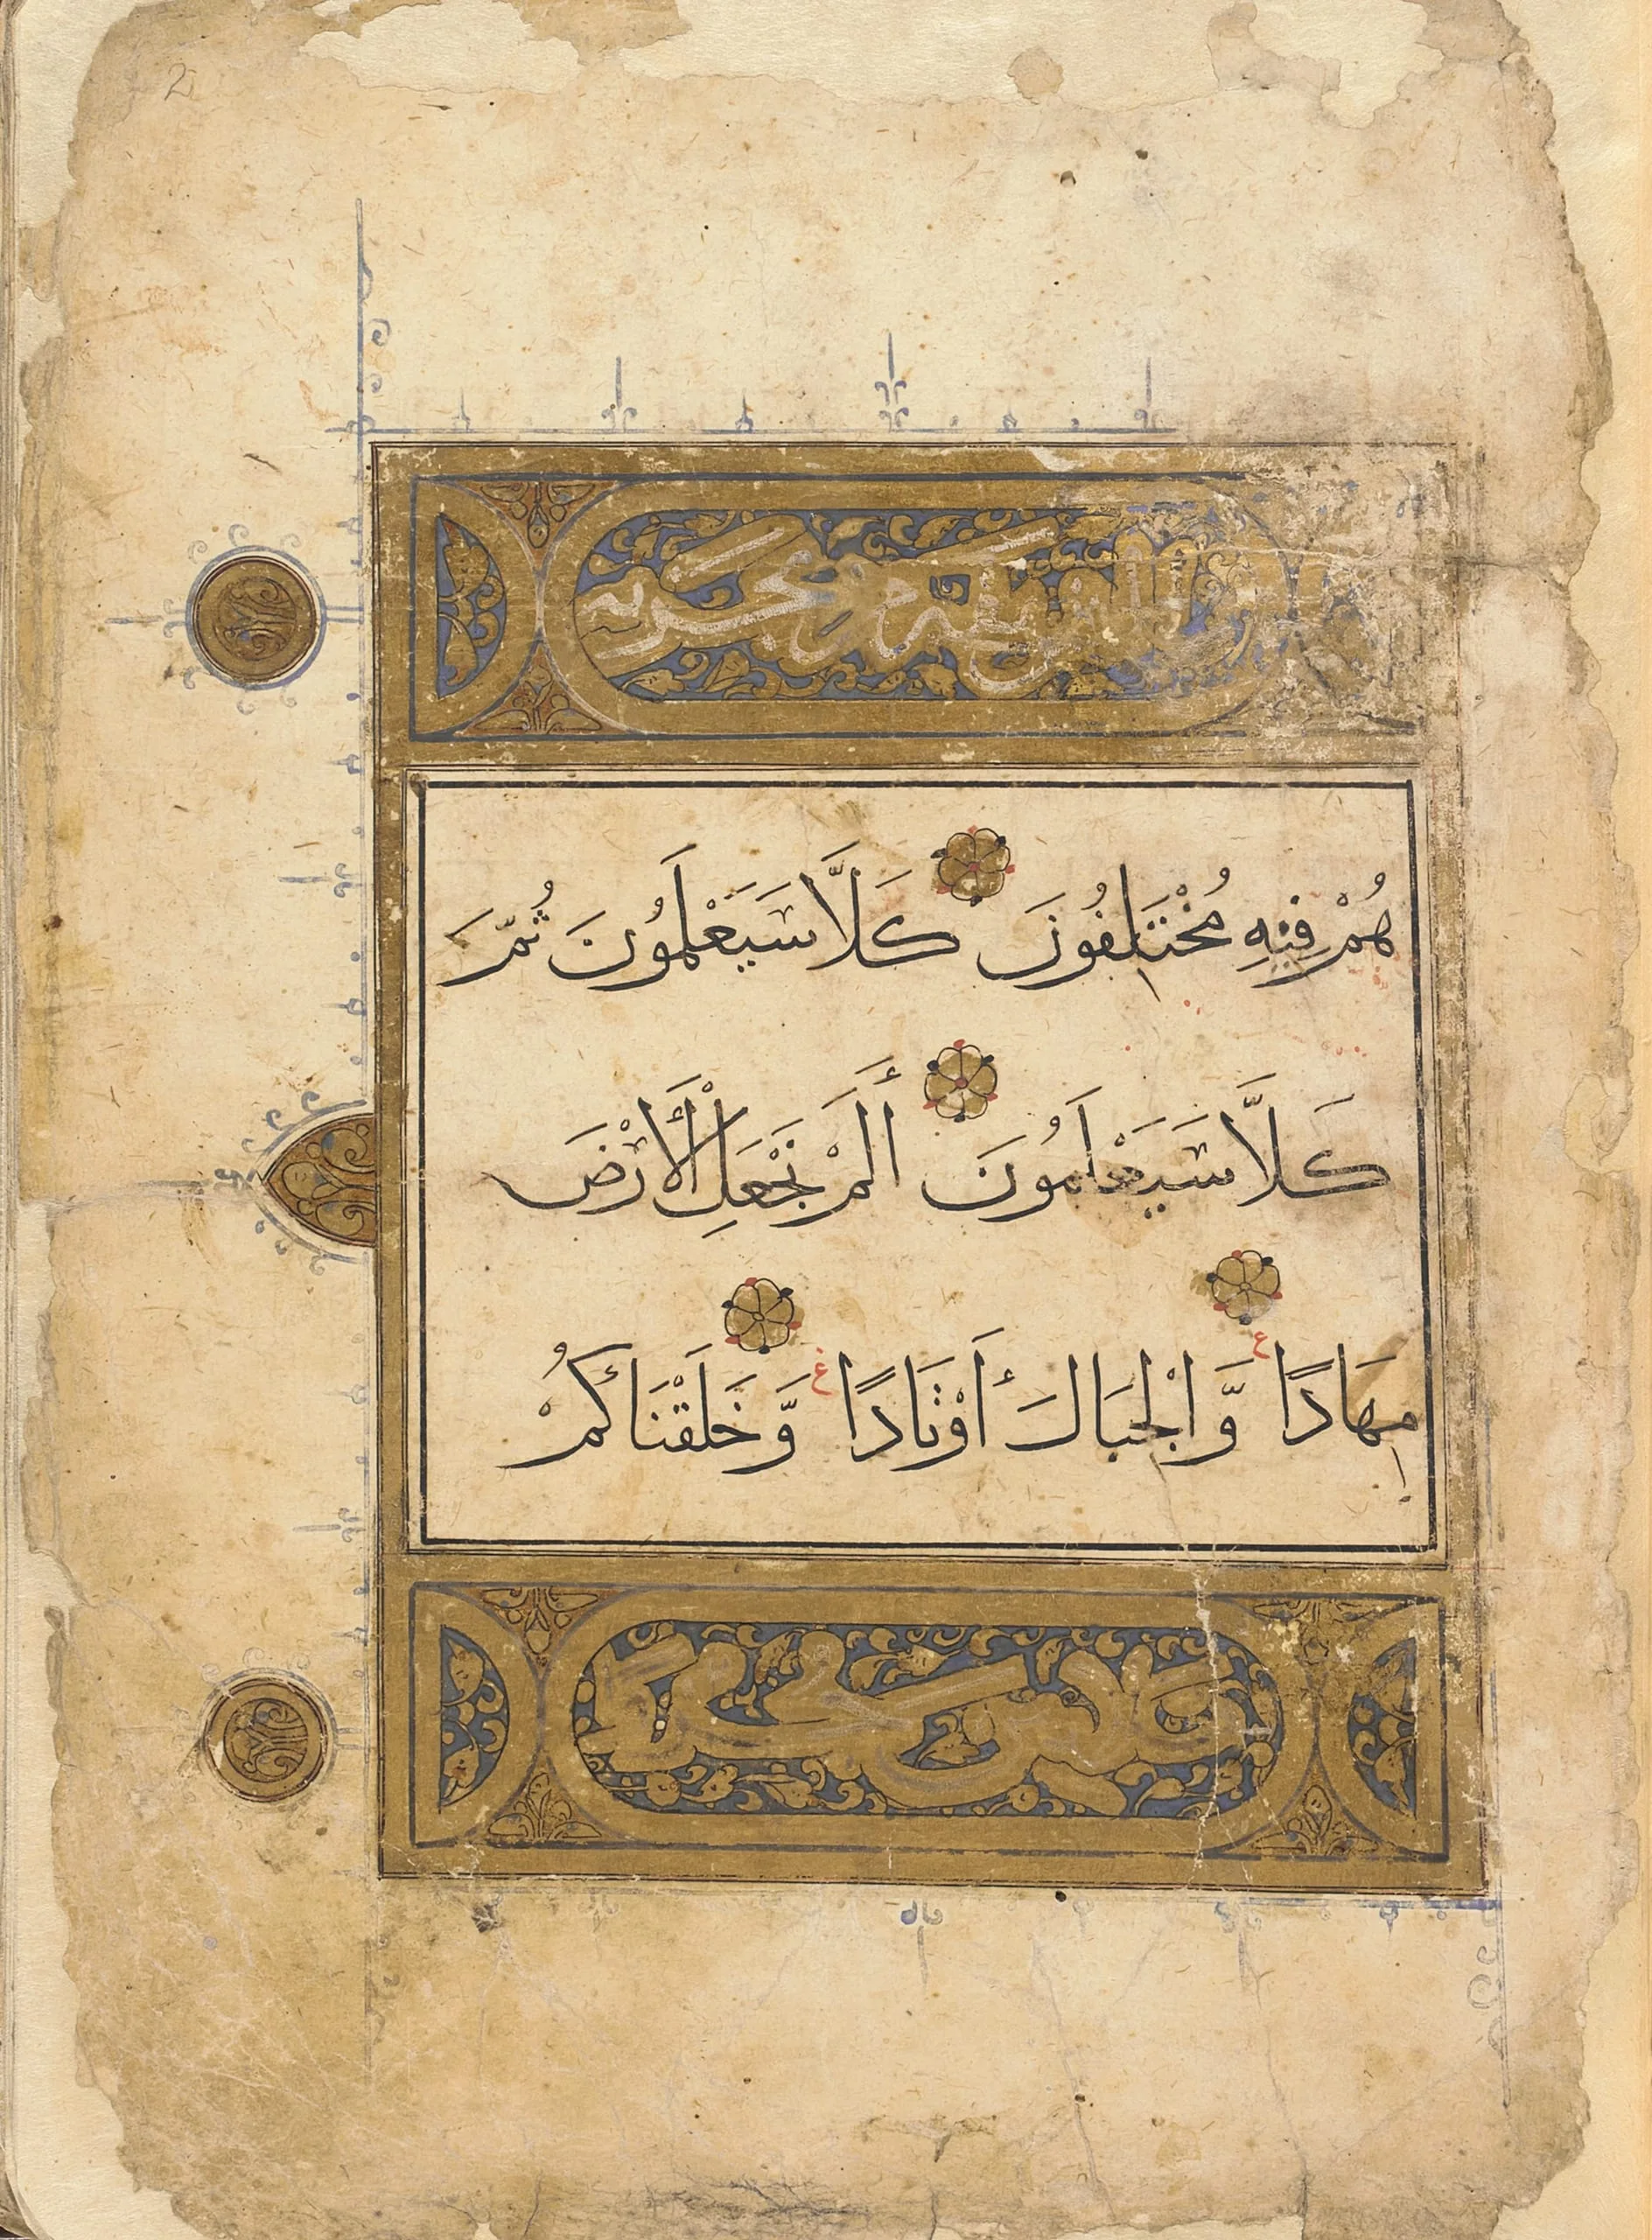 2
هُمْ فِيْهِ مُخْتَلِفُوْنَ كَلَّا سَيَعْلَمُوْنَ ثُمَّ
كَلَّا سَيَعْلَمُوْنَ أَلَمْ نَجْعَلِ الْأَرْضَ
مِهَادًا ع وَّالْجِبَالَ أَوْتَادًا ع وَّخَلَقْنَاكُمْ